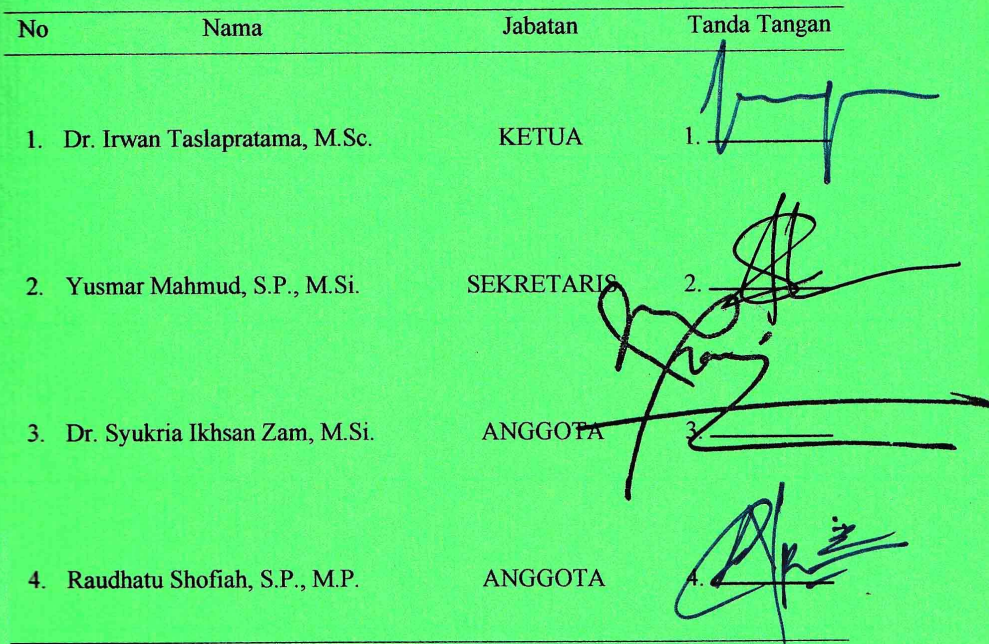 No Nama Jabatan Tanda Tangan
1. Dr. Irwan Taslapratama, M.Sc. KETUA 1.
2. Yusmar Mahmud, S.P., M.Si. SEKRETARIS 2.
3. Dr. Syukria Ikhsan Zam, M.Si. ANGGOTA 3.
4. Raudhatu Shofiah, S.P., M.P. ANGGOTA 4.